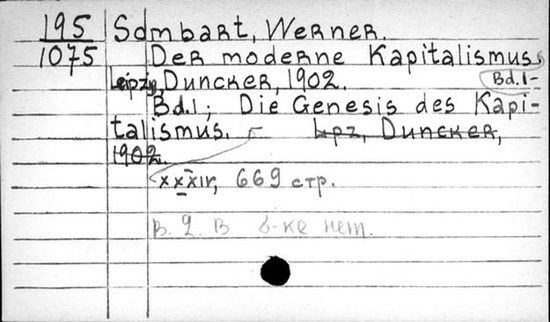 195 Sombart, Werner.
1075 Der moderne Kapitalismus.
Leipzig, Duncker, 1902. Bd.1-
Bd.1; Die Genesis des Kapi-
talismus. Lpz, Duncker,
1902.
XXXIV, 669 стр.
В. 2. в б-ке нет.